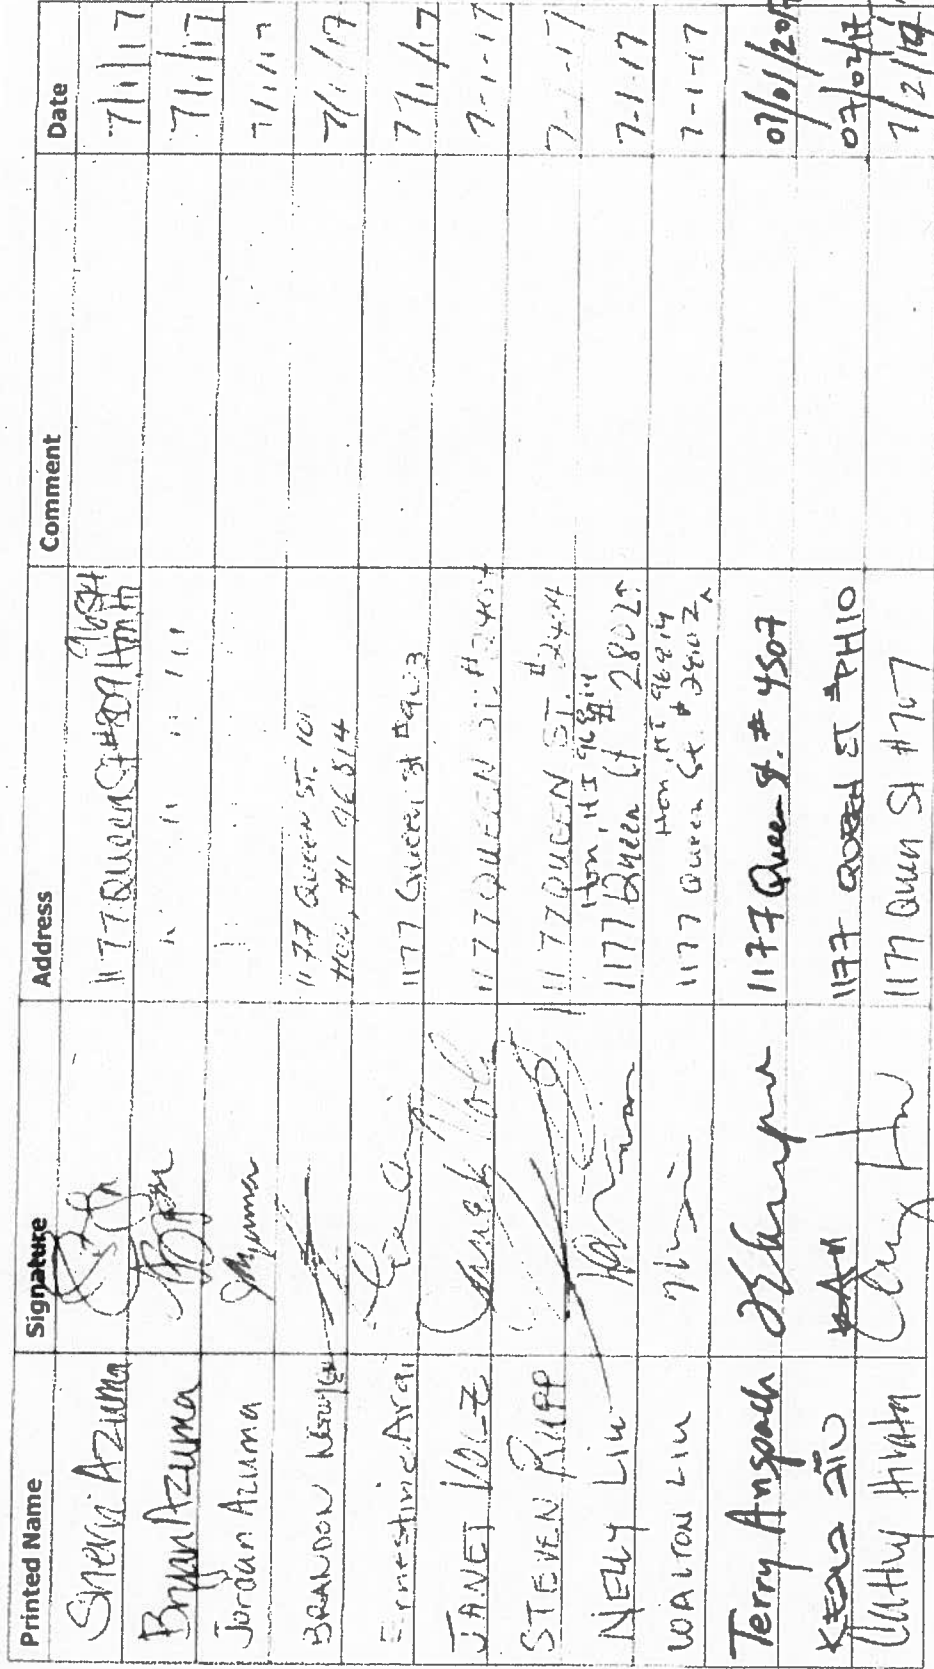 Printed Name Signature Address Comment Date
Sherri Azuma 1177 Queen St #809 Hnh 96814 7/1/17
Bryan Azuma " " " " 7/1/17
Jordan Azuma Azuma 7/1/17
BRANDON 1177 QUEEN ST. 101 7/1/17
HON, HI 96814
Ernestine Arai 1177 Queen St #923 7/1/17
JANET VOLZ Janet Volz 1177 QUEEN ST. #2404 7-1-17
STEVEN RUPP 1177 QUEEN ST. #2404 7-1-17
Hon, HI 96814
NELLY LIU 1177 Queen St # 2802 7-1-17
Hon, HI 96814
WALTON LIU 1177 Queen St. # 2802 7-1-17
Terry Anspach 1177 Queen St. # 4507 07/01/2017
1177 QUEEN ST #PH10 07/02/17
Cathy Hirata 1177 Queen St #707 7/2/17